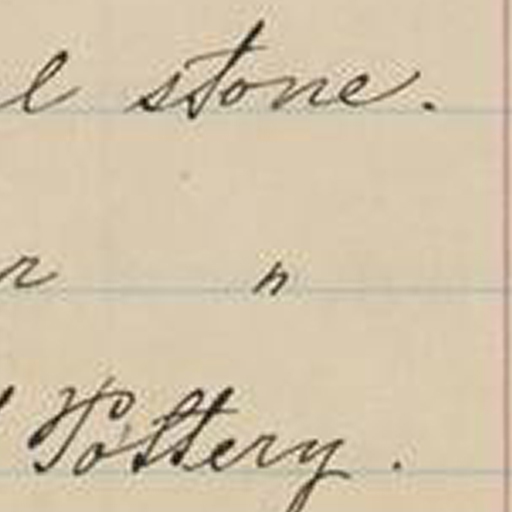 l stone.
r "
Pottery.